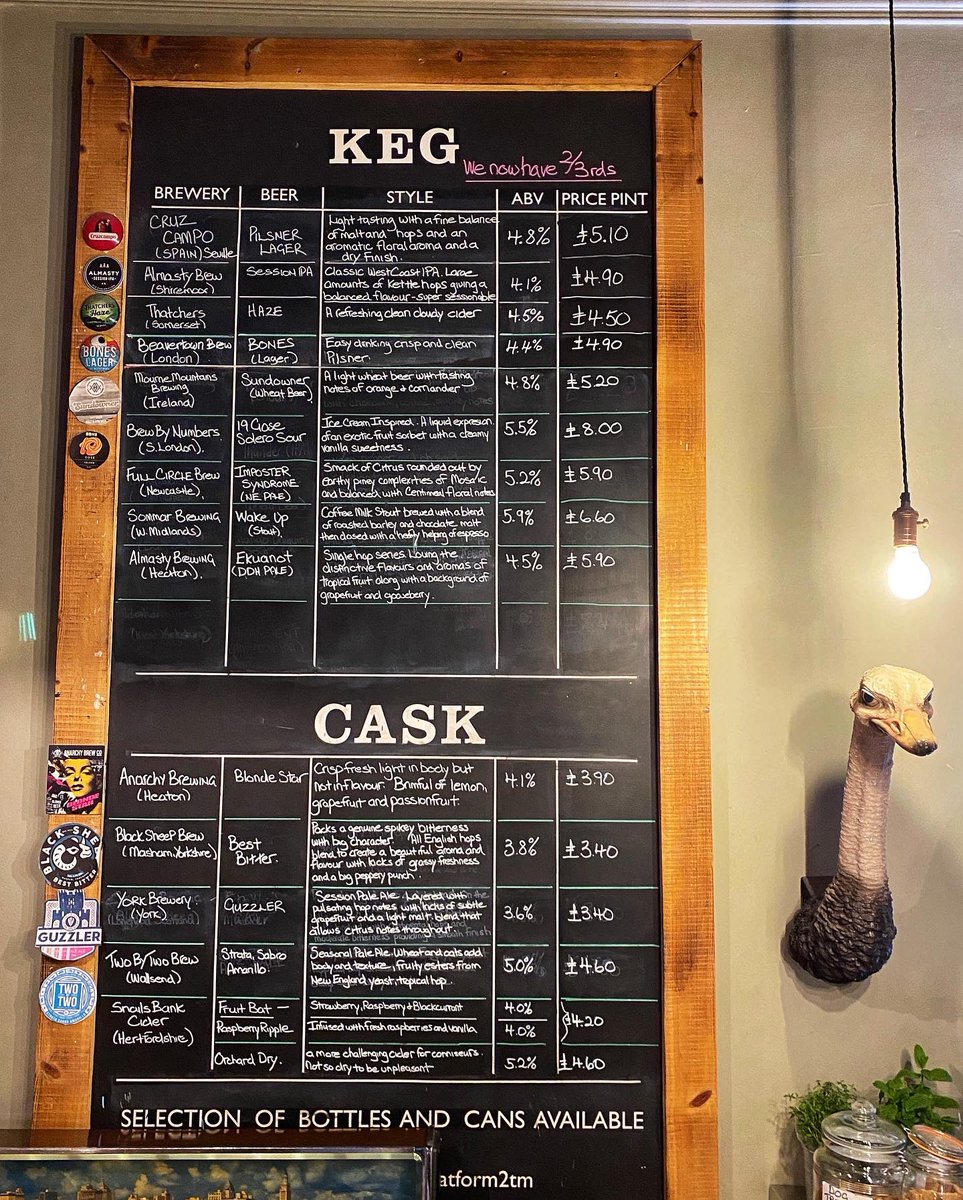 KEG
We now have 2/3rds
BREWERY BEER STYLE ABV PRICE PINT
CRUZ CAMPO (SPAIN) Seville PILSNER LAGER Light tasting with a fine balance of malt and hops and an aromatic floral aroma and a dry finish. 4.8% £5.10
Almasty Brew (Shiremoor) SESSION IPA Classic West Coast IPA. Large amounts of Kettle hops giving a balanced flavour - super sessionable 4.1% £4.90
Thatchers (Somerset) HAZE A refreshing clean cloudy cider 4.5% £4.50
Beavertown Brew (London) BONES (Lager) Easy drinking crisp and clean Pilsner. 4.4% £4.90
Mourne Mountains Brewing (Ireland) Sundowner (Wheat Beer) A light wheat beer with tasting notes of orange & corriander 4.8% £5.20
Brew By Numbers (S. London). 19 Close Solero Sour Ice Cream Inspired. A liquid expresion of an exotic fruit sorbet with a creamy vanilla sweetness. 5.5% £8.00
Full Circle Brew (Newcastle). IMPOSTER SYNDROME (NE PALE) Smack of Citrus rounded out by earthy piney complexities of Mosaic and balanced with Centinneal floral notes 5.2% £5.90
Sommar Brewing (W. Midlands) Wake Up (Stout). Coffee Milk Stout brewed with a blend of roasted barley and chocolate malt then dosed with a hefty helping of espresso 5.9% £6.60
Almasty Brewing (Heaton). Ekuanot (DDH PALE) Single hop series. Using the distinctive flavours and aromas of tropical fruit along with a background of grapefruit and gooseberry. 4.5% £5.90
CASK
Anarchy Brewing (Heaton) Blonde Star Crisp fresh light in body but not in flavour. Brimful of lemon, grapefruit and passionfruit. 4.1% £3.90
Black Sheep Brew (Masham, Yorkshire) Best Bitter. Packs a genuine spikey bitterness with big character. All English hops blend to create a beautiful aroma and flavour with lacks of grassy freshness and a big peppery punch. 3.8% £3.40
York Brewery (York) GUZZLER Session Pale Ale. Layered with pulsating hop notes with hints of subtle grapefruit and a light malt blend that allows citrus notes throughout 3.6% £3.40
Two By Two Brew (Wallsend) Strata, Sabro Amarillo. Seasonal Pale Ale. Wheat and oats add body and texture, fruity esters from New England yeast, tropical hop. 5.0% £4.60
Snails Bank Cider (Hertfordshire) Fruit Bat — Strawberry, Raspberry & Blackcurrant 4.0%
Raspberry Ripple Infused with fresh raspberries and vanilla 4.0% £4.20
Orchard Dry. a more challenging cider for connoiseurs. not so dry to be unpleasant 5.2% £4.60
SELECTION OF BOTTLES AND CANS AVAILABLE
atform2tm
Cruzcampo
ALMASTY
SESSION IPA
THATCHERS
Haze
BONES
LAGER
Sundowner
ANARCHY BREW CO
BLONDE STAR
BLACK SHEEP
BEST BITTER
GUZZLER
TWO BY TWO